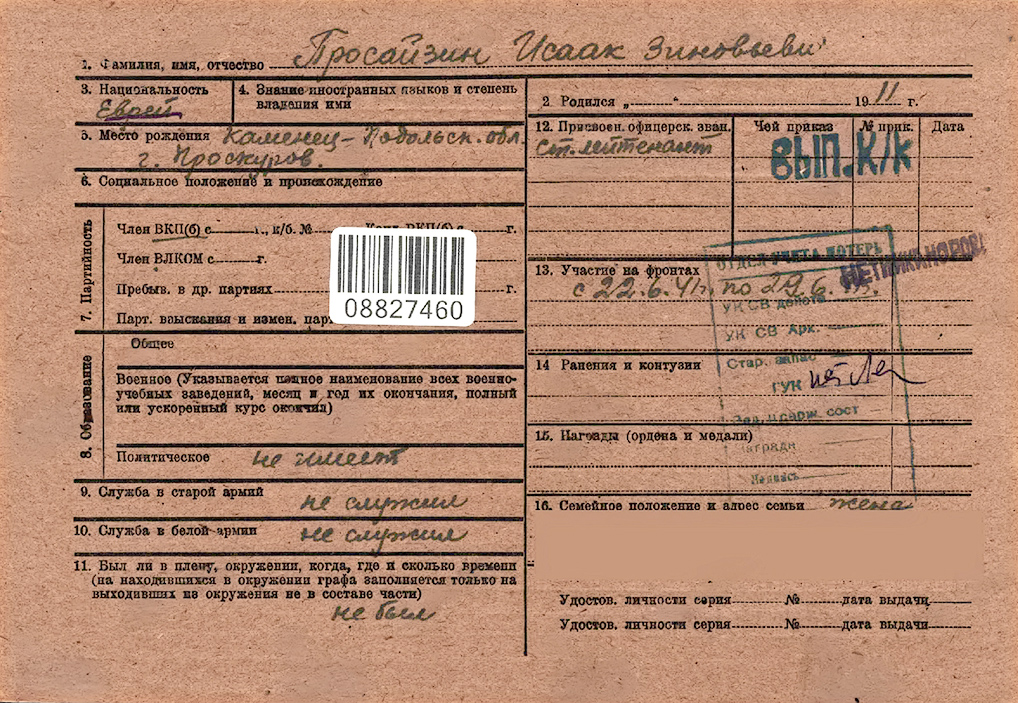 1. Фамилия, имя, отчество Просайзин Исаак Зиновьеви
3. Национальность
Еврей
4. Знание иностранных языков и степень
владения ими
5. Место рождения Каменец-Подольск. обл.
г. Проскуров.
6. Социальное положение и происхождение
7. Партийность
Член ВКП(б) с г., к/б. № ВКП(б) с г.
Член ВЛКСМ с г.
Пребыв. в др. партиях г.
Парт. взыскания и измен.
08827460
8. Образование
Общее
Военное (Указывается полное наименование всех военно-
учебных заведений, месяц и год их окончания, полный
или ускоренный курс окончил)
Политическое не имеет
9. Служба в старой армий не служил
10. Служба в белой армии не служил
11. Был ли в плену, окружении, когда, где и сколько времени
(на находившихся в окружении графа заполняется только на
выходивших из окружения не в составе части)
не был
2 Родился „ “ 1911 г.
12. Присвоен. офицерск. зван. Чей приказ № прик. Дата
ст. лейтенант
ВЫП.К/К
13. Участие на фронтах
с 22.6.41г. по 29.6.
ОТДЕЛ УЧЕТА ПОТЕРЬ
УК СВ
УК СВ Арх.
Стар. запас
14 Ранения и контузии
ГУК нет
сост
15. Награды (ордена и медали)
16. Семейное положение и адрес семьи жена
Удостов. личности серия № дата выдачи
Удостов. личности серия № дата выдачи